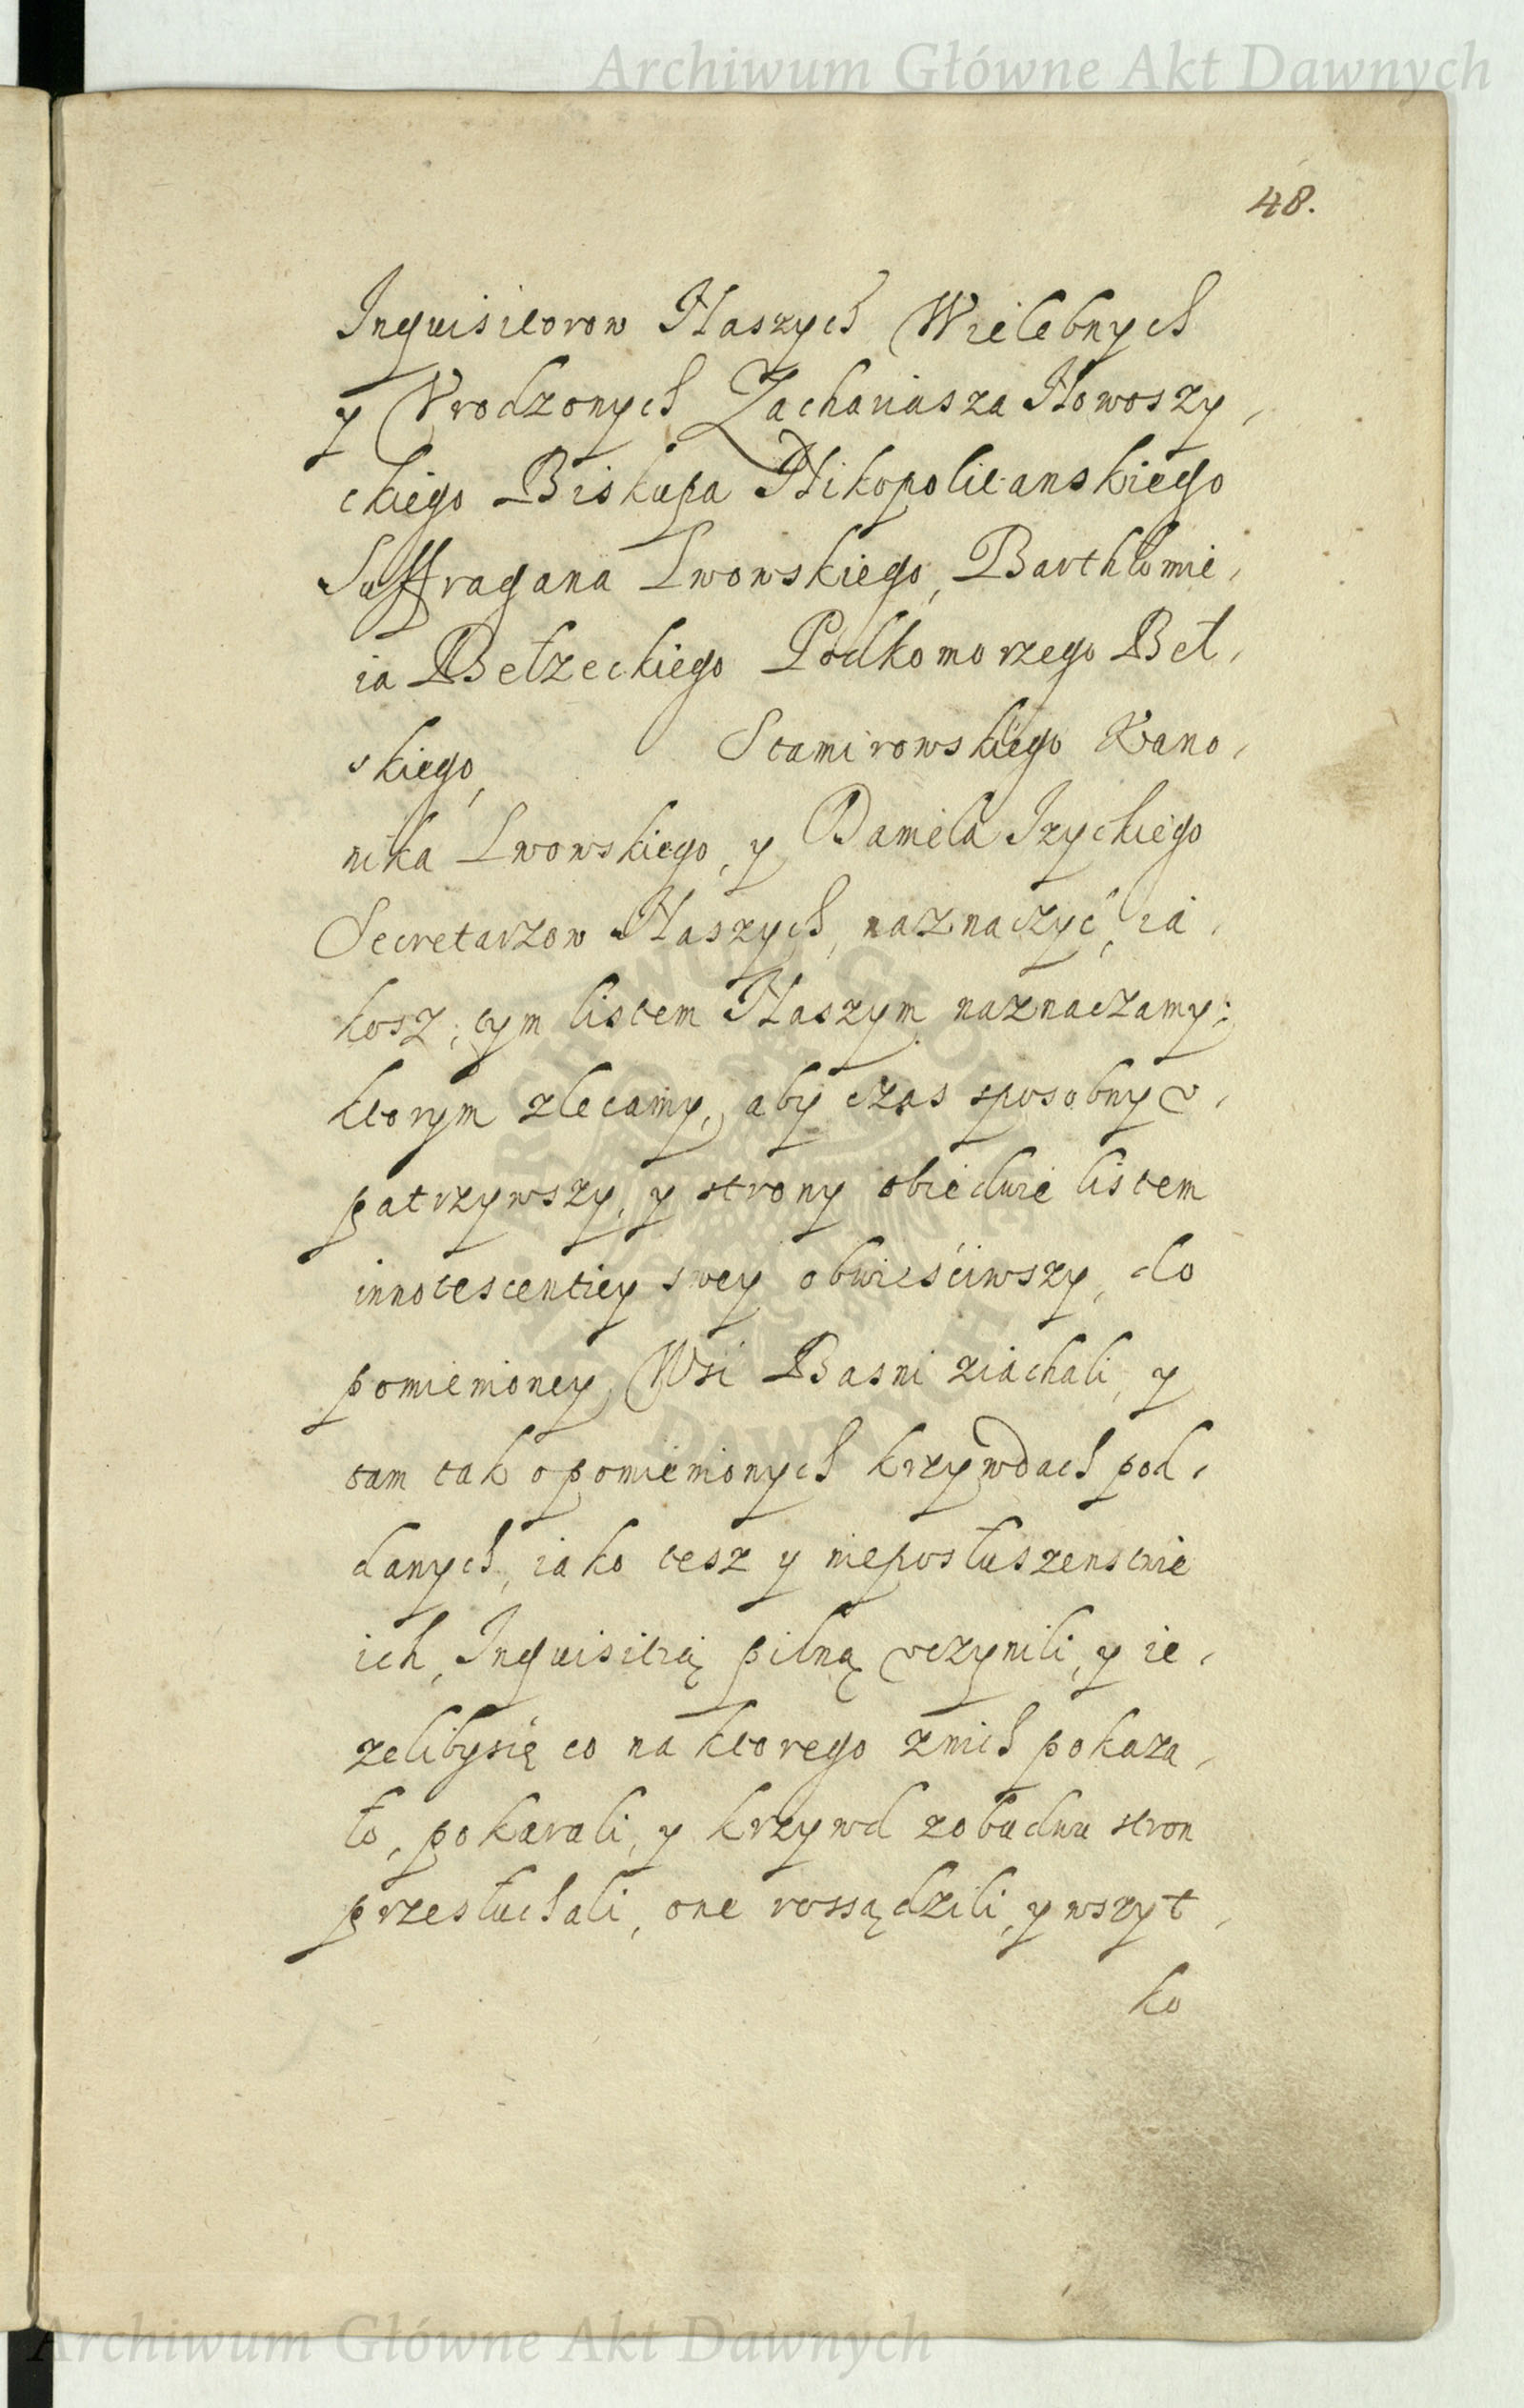 Archiwum Główne Akt Dawnych
48.
Inquisitorow Naszych Wielebnych
y Vrodzonych Zachariasza Nowoszy,
ckiego Biskupa Nikopolitanskiego
Suffragana Lwowskiego, Barthłomie,
ia Bełzeckiego Podkomorzego Beł,
skiego, Stamirowskiego Kano,
nika Lwowskiego, y Daniela Izyckiego
Secretarzow Naszych, naznaczyć, ia,
kosz, tym listem Naszym naznaczamy:
ktorym zlecamy, aby czas sposobny v,
patrzywszy, y strony obiedwie listem
innotescentiey swey obwieściwszy, do
pomienioney Wsi Basni ziachali, y
tam tak o pomienionych krzywdach pod,
danych, iako tesz y nieposłuszenstwie
ich, Inquisitią pilną vczynili, y ie,
zelibysię co na ktorego znich pokaza,
ło, pokarali, y krzywd zobudwu stron
przesłuchali, one rossądzili, y wszyt,
ko
ARCHIWUM GŁÓWNE AKT DAWNYCH
Archiwum Główne Akt Dawnych